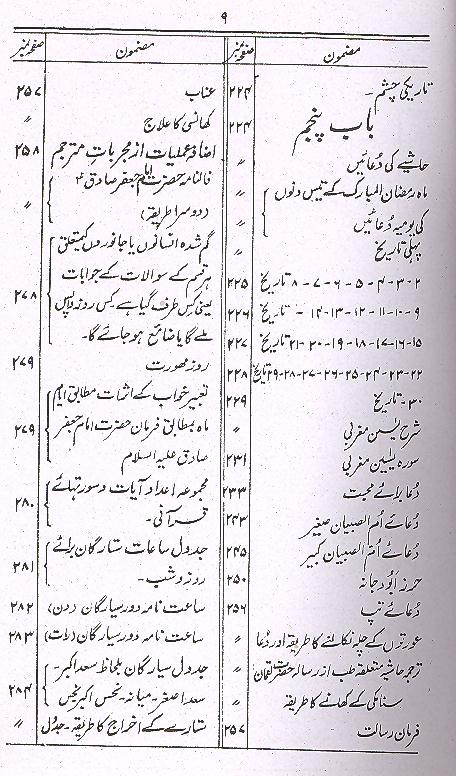 ۹
مضمون صفحہ نمبر
تاریکی چشم۔ ۲۲۴
باب پنجم ۲۲۴
حاشیے کی دُعائیں ״
ماہ رمضان المبارک کے تیس دنوں
کی یومیہ دُعائیں ״
پہلی تاریخ ״
۲-۳-۴-۵-۶-۷-۸ تاریخ ۲۲۵
۹-۱۰-۱۱-۱۲-۱۳-۱۴ تاریخ ۲۲۶
۱۵-۱۶-۱۷-۱۸-۱۹-۲۰-۲۱ تاریخ ۲۲۷
۲۲-۲۳-۲۴-۲۵-۲۶-۲۷-۲۸-۲۹ تاریخ ۲۲۸
۳۰- تاریخ ۲۲۹
شرح یٰسین مغربی ״
سورہ یٰسین مغربی ۲۳۱
دُعا برائے محبت ۲۳۳
دُعائے اُم الصبیان صغیر ۲۴۳
دُعائے اُم الصبیان کبیر ۲۴۵
حرز ابُو دجانہ ۲۵۰
دُعائے تپ ۲۵۶
عورتوں کے چلہ نکالنے کا طریقہ اور دُعا ״
ترجمہ حاشیہ متعلقہ طب از رسالہ حضرت لقمان ״
سنامکی کے کھانے کا طریقہ ״
فرمان رسالت ۲۵۷
مضمون صفحہ نمبر
عناب ۲۵۷
کھانسی کا علاج ״
اضافہ عملیات از مجربات مترجم ۲۵۸
فالنامہ حضرت امام جعفر صادق ؑ
(دوسرا طریقہ) ״
گم شدہ انسانوں یا جانوروں کے متعلق
ہر قسم کے سوالات کے جوابات
یعنی کس طرف گیا ہے کس روز واپس ۲۷۸
ملے گا یا ضائع ہو جائے گا۔
روز مہورت ۲۷۹
تعبیر خواب کے اثرات مطابق ایام
ماہ بمطابق فرمان حضرت امام جعفر ۲۷۹
صادق علیہ السلام
مجموعہ اعداد آیات و سورتہائے
قرآنی۔ ۲۸۰
جدول ساعات ستارگان برائے
روز و شب۔ ۲۸۱
ساعت نامہ دور سیارگان (دن) ۲۸۲
ساعت نامہ دور سیارگان (رات) ۲۸۳
جدول سیارگان بلحاظ سعد اکبر۔
سعد اصغر۔ میانہ۔ نحس اکبر نحس ۲۸۴
ستارے کے اخراج کا طریقہ۔ جدول ״